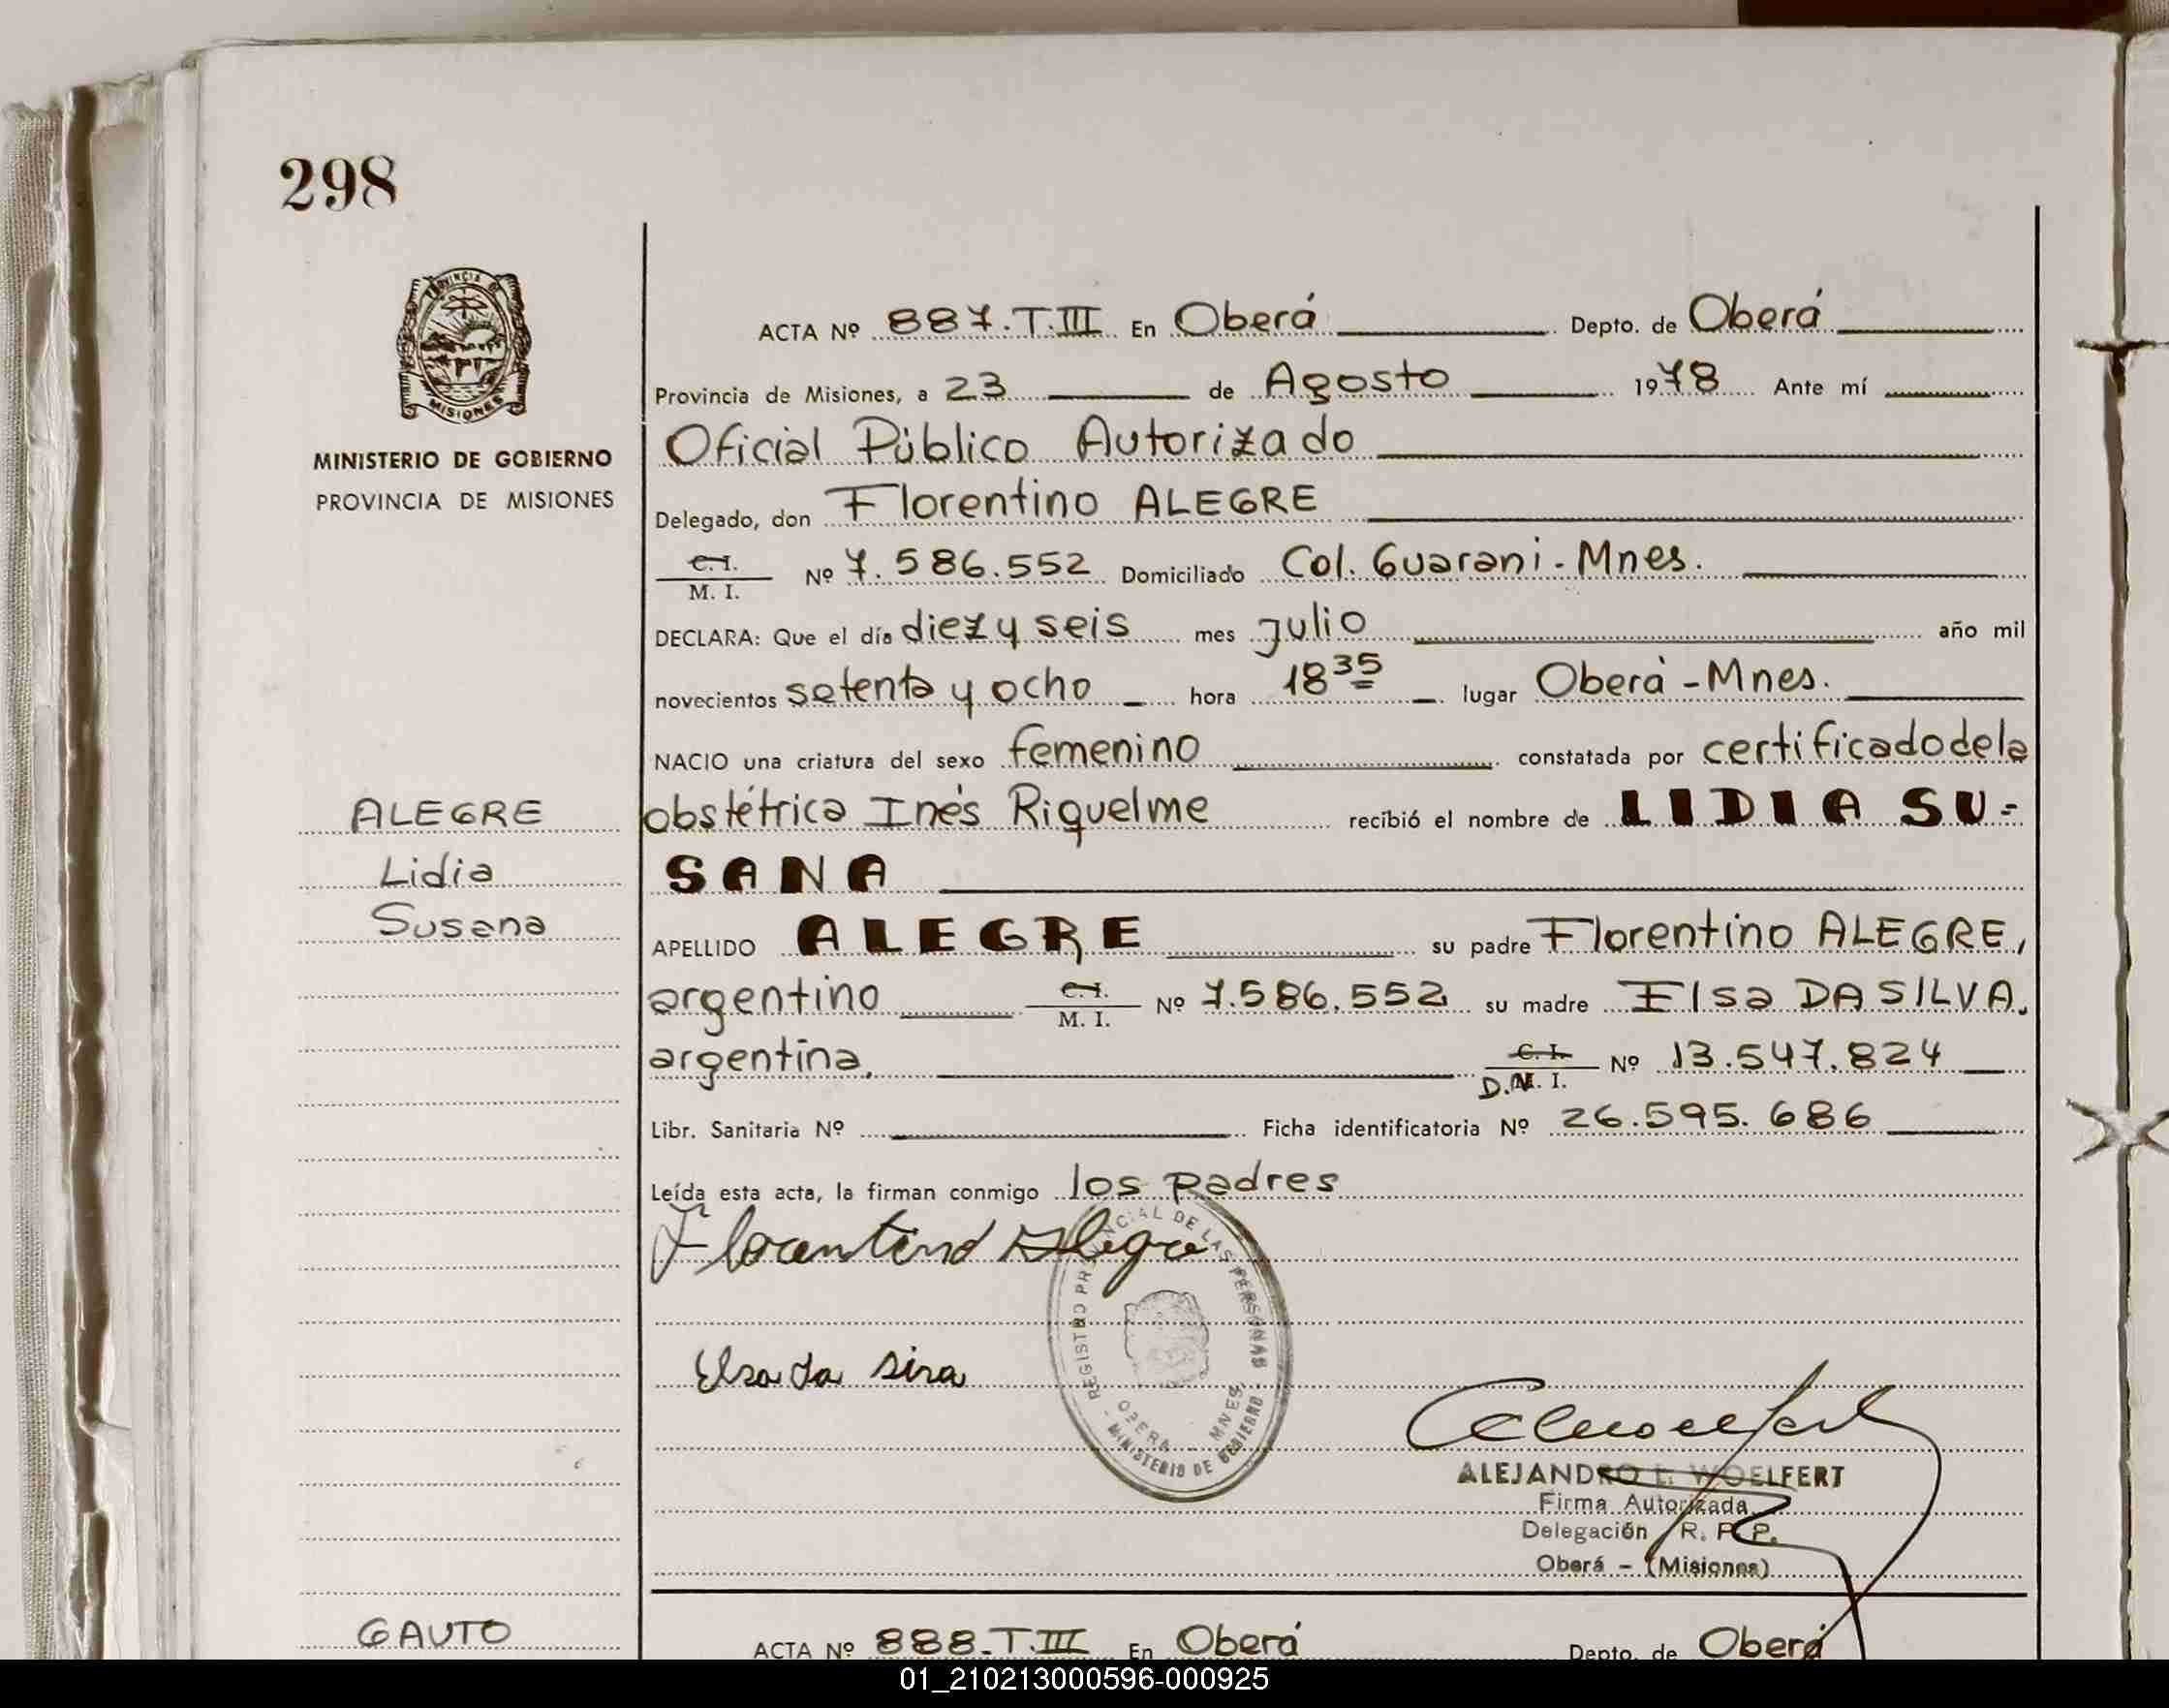 298
PROVINCIA DE
MISIONES
MINISTERIO DE GOBIERNO
PROVINCIA DE MISIONES
ACTA Nº 887.T.III En Oberá Depto. de Oberá
Provincia de Misiones, a 23 de Agosto 1978 Ante mí
Oficial Público Autorizado
Delegado, don Florentino ALEGRE
C.I.
M. I. Nº 7.586.552 Domiciliado Col. Guarani - Mnes.
DECLARA: Que el día diez y seis mes julio año mil
novecientos setenta y ocho hora 18 35 lugar Oberà - Mnes.
NACIO una criatura del sexo femenino constatada por certificado de la
ALEGRE obstétrica Inés Riquelme recibió el nombre de LIDIA SU=
Lidia SANA
Susana APELLIDO ALEGRE su padre Florentino ALEGRE,
argentino C.I. M. I. Nº 7.586.552 su madre Elsa DA SILVA,
argentina, C.I. D.N. I. Nº 13.547.824
Libr. Sanitaria Nº Ficha identificatoria Nº 26.595.686
Leída esta acta, la firman conmigo los padres
Florentino Alegre
REGISTRO PROVINCIAL DE LAS PERSONAS
OBERA - MNES.
- MINISTERIO DE GOBIERNO -
Elsa da sira
ALEJANDRO E. WOELFERT
Firma Autorizada
Delegación R. P. P.
Oberá - (Misiones)
GAUTO ACTA Nº 888-T.III En Oberá Depto. de Oberá
01_210213000596-000925